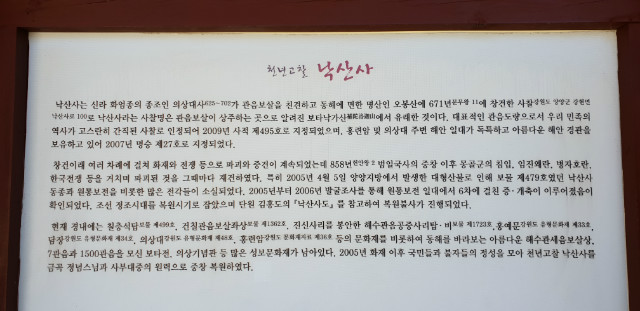 천년고찰 낙산사
낙산사는 신라 화엄종의 종조인 의상대사625~702가 관음보살을 친견하고 동해에 면한 명산인 오봉산에 671년문무왕 11에 창건한 사찰강원도 양양군 강현면
낙산사로 100로 낙산사라는 사찰명은 관음보살이 상주하는 곳으로 알려진 보타낙가산補陀洛迦山에서 유래한 것이다. 대표적인 관음도량으로서 우리 민족의
역사가 고스란히 간직된 사찰로 인정되어 2009년 사적 제495호로 지정되었으며, 홍련암 및 의상대 주변 해안 일대가 독특하고 아름다운 해안 경관을
보유하고 있어 2007년 명승 제27호로 지정되었다.
창건이래 여러 차례에 걸쳐 화재와 전쟁 등으로 파괴와 중건이 계속되었는데 858년헌안왕 2 범일국사의 중창 이후 몽골군의 침입, 임진왜란, 병자호란,
한국전쟁 등을 거치며 파괴된 것을 그때마다 재건하였다. 특히 2005년 4월 5일 양양지방에서 발생한 대형산불로 인해 보물 제479호였던 낙산사
동종과 원통보전을 비롯한 많은 전각들이 소실되었다. 2005년부터 2006년 발굴조사를 통해 원통보전 일대에서 6차에 걸친 중·개축이 이루어졌음이
확인되었다. 조선 정조시대를 복원시기로 잡았으며 단원 김홍도의 『낙산사도』를 참고하여 복원불사가 진행되었다.
현재 경내에는 칠층석탑보물 제499호, 건칠관음보살좌상보물 제1362호, 진신사리를 봉안한 해수관음공중사리탑·비보물 제1723호, 홍예문강원도 유형문화재 제33호,
담장강원도 유형문화재 제34호, 의상대강원도 유형문화재 제48호, 홍련암강원도 문화재자료 제36호 등의 문화재를 비롯하여 동해를 바라보는 아름다운 해수관세음보살상,
7관음과 1500관음을 모신 보타전, 의상기념관 등 많은 성보문화재가 남아있다. 2005년 화재 이후 국민들과 불자들의 정성을 모아 천년고찰 낙산사를
금곡 정념스님과 사부대중의 원력으로 중창 복원하였다.